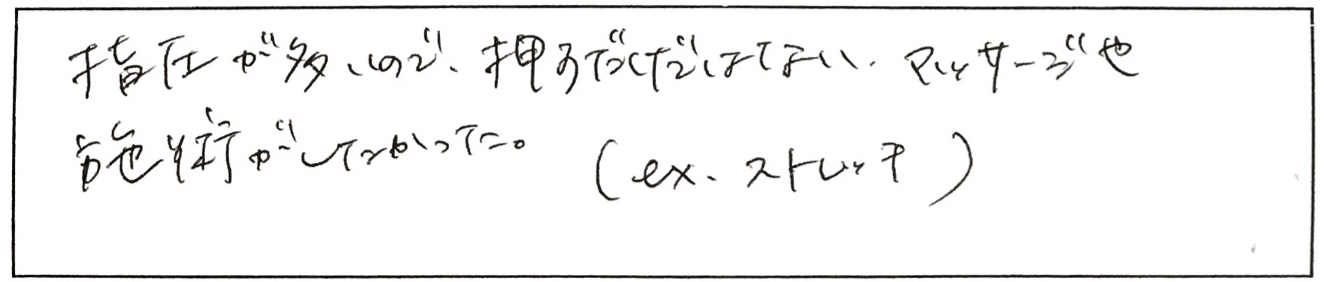 指圧が多いので、押すだけではない、マッサージや
施術がしてみたかった。 (ex. ストレッチ)